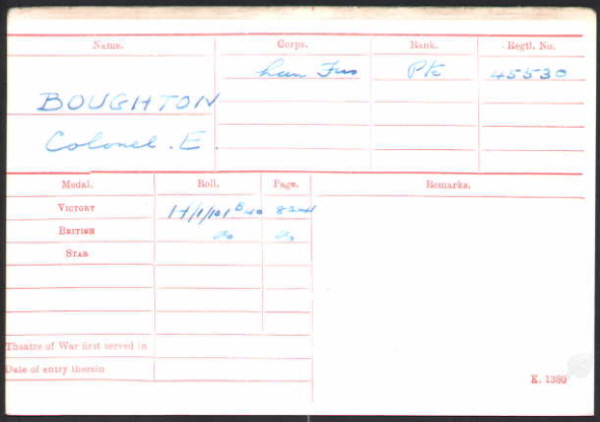 Name. Corps. Rank. Regtl. No.
Lan Fus Pte 45530
BOUGHTON
Colonel . E.
Medal. Roll. Page. Remarks.
VICTORY
BRITISH do do
STAR
Theatre of War first served in
Date of entry therein
K. 1380